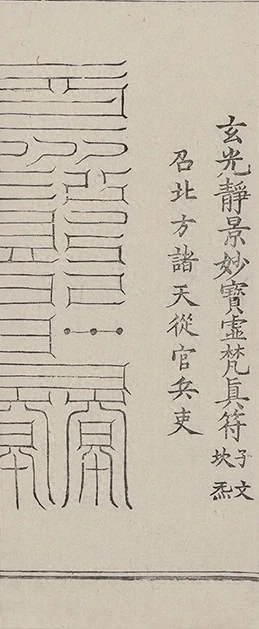 玄光靜景妙寶虛梵真符 子文坎炁
召北方諸天從官兵吏